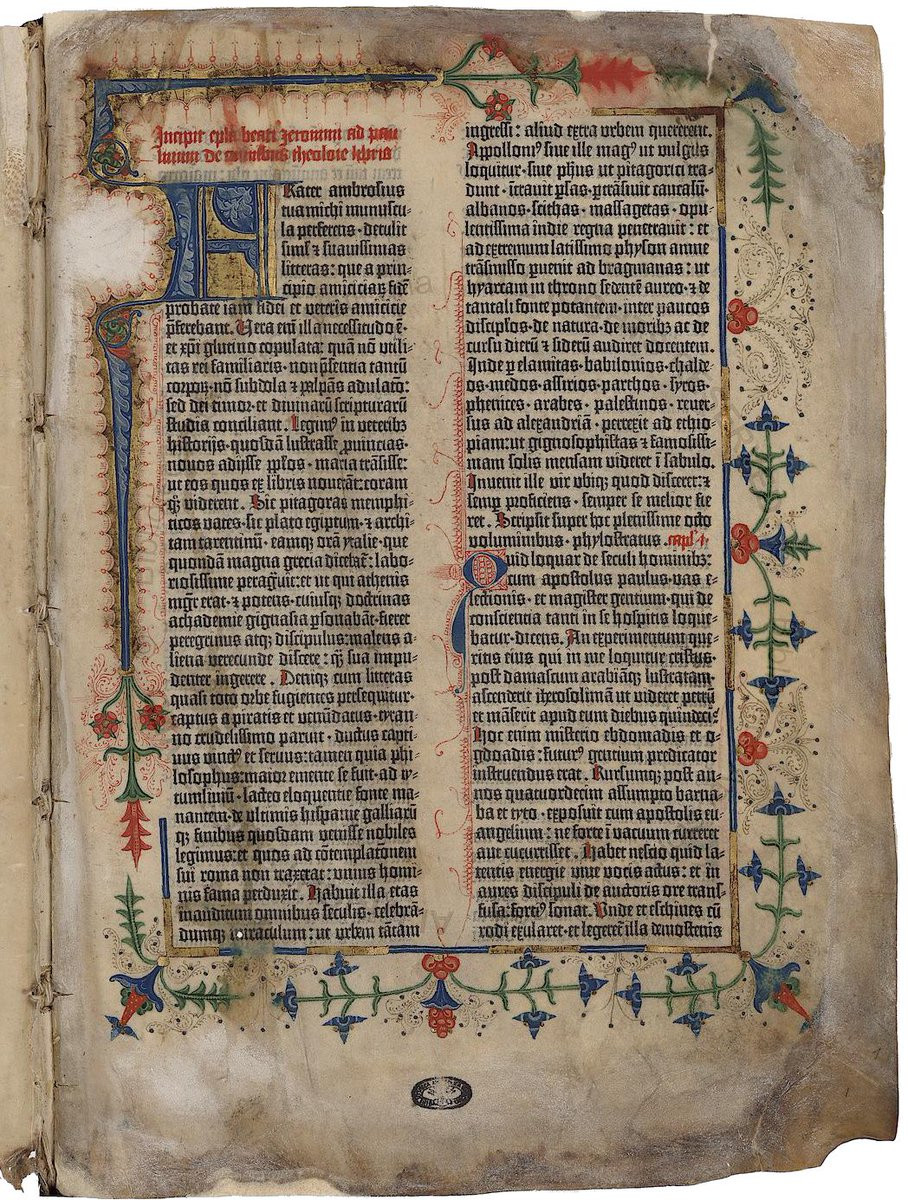 Incipit epl̃a beati Jeronimi ad pau
linum de omnibus theologie libris
Frater ambrosius
tua michi munuscu-
la perferens · detulit
simĺ ⁊ suavissimas
litteras: que a prin-
cipio amiciciaꝝ fidē
probate iam fidei et veteris amicicie
p̄ferebant. Vera em̄ illa necessitudo ē·
et xp̄i glutino copulata: quā nō utili-
tas rei familiaris · non p̄sentia tantū
corpoꝝ nō subdola ⁊ palpās adulatō:
sed dei timor · et divinaꝝ scripturarū
studia conciliant. Legimꝰ in veteribꝫ
historijs · quosdā lustrasse ꝓvincias·
novos adijsse ppl̄os · maria trāsisse:
ut eos quos ex libris noverāt: coram
qꝫ viderent. Sic pitagoras memphi-
ticos vates · sic plato egiptum · ⁊ archi-
tam tarentinū · eamqꝫ orā ytalie · que
quondā magna grecia dicebat᷑: labo-
riosissime peragravit: et ut qui athenis
mgr̄ erat · ⁊ potens · cuiusqꝫ doctrinas
achademie gignasia ꝑsonabāt · fieret
peregrinus atqꝫ discipulus: malens a-
liena verecunde discere: qꝫ sua impu-
denter ingerere. Deniqꝫ cum litteras
quasi toto orbe fugientes persequitur·
captus a piratis et venūdatus · tyran-
no crudelissimo paruit · ductus capti-
vus vinctꝰ et servus: tamen quia phi-
losophus: maior emente se fuit · ad ty-
tumliviū · lacteo eloquentie fonte ma-
nantem · de ultimis hispanie galliarū
qꝫ finibus quosdam venisse nobiles
legimus: et quos ad cōtemplatōnem
sui roma non traxerat: unius homi-
nis fama perduxit. Habuit illa etas
inauditum omnibus seculis · celebrā-
dumqꝫ miraculum: ut urbem tātam
ingressi: aliud extra urbem quererent.
Appollonꝰ sive ille magꝰ ut vulgus
loquitur · sive ph̄us ut pitagorici tra-
dunt · ītravit ꝑsas · ꝑtrāsivit caucasū·
albanos · scithas · massagetas · opu-
lentissima indie regna penetravit: et
ad extremum latissimo physon amne
trāsmisso ꝑvenit ad bragmanas: ut
hyarcam in throno sedentē aureo · ⁊ de
tantali fonte potantem · inter paucos
discipl̄os · de natura · de moribꝫ ac de
cursu dierū ⁊ siderū audiret docentem.
Inde ꝑ elamitas · babilonios · chalde-
os · medos · assirios · parthos · syros·
phenices · arabes · palestinos · rever-
sus ad alexandriā · perrexit ad ethio-
piam: ut gignosophistas ⁊ famosissi-
mam solis mensam videret ī sabulo.
Invenit ille vir ubiqꝫ quod disceret: ⁊
semꝑ proficiens · semper se melior fie
ret. Scripsit super hoc plenissime octo
voluminibus · phylostratus.
Quid loquar de seculi hominibꝫ:
cum apostolus paulus · vas e-
lectionis · et magister gentium · qui de
conscientia tanti in se hospitis loque-
batur · dicens. An experimentum que-
ritis eius qui in me loquitur cristus·
post damascum arabiāqꝫ lustratam·
ascenderit iherosolimā ut videret petrū
et māserit apud eum diebus quindeci?
Hoc enim misterio ebdomadis et o-
gdoadis: futurꝰ gentium predicator
instruendus erat. Rursumqꝫ post an-
nos quatuordecim assumpto barna-
ba et tyto · exposuit cum apostolis eu-
angelium: ne forte ī vacuum curreret
aut cucurrisset. Habet nescio quid la-
tentis energie vive vocis actus: et in
aures discipuli de auctoris ore trans-
fusa: fortiꝰ sonat. Unde et eschines cū
rodi exularet · et legeret᷑ illa demostenis